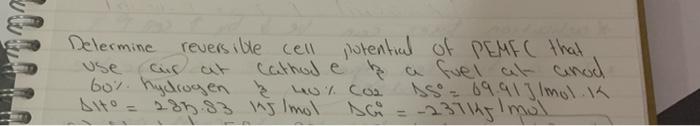 Determine reversible cell potential of PEMFC that
use air at cathode & a fuel at anod
60% hydrogen & 40% CO2 ΔS° = 69.91J/mol.K
ΔH° = 285.83 KJ/mol ΔG° = -237KJ/mol